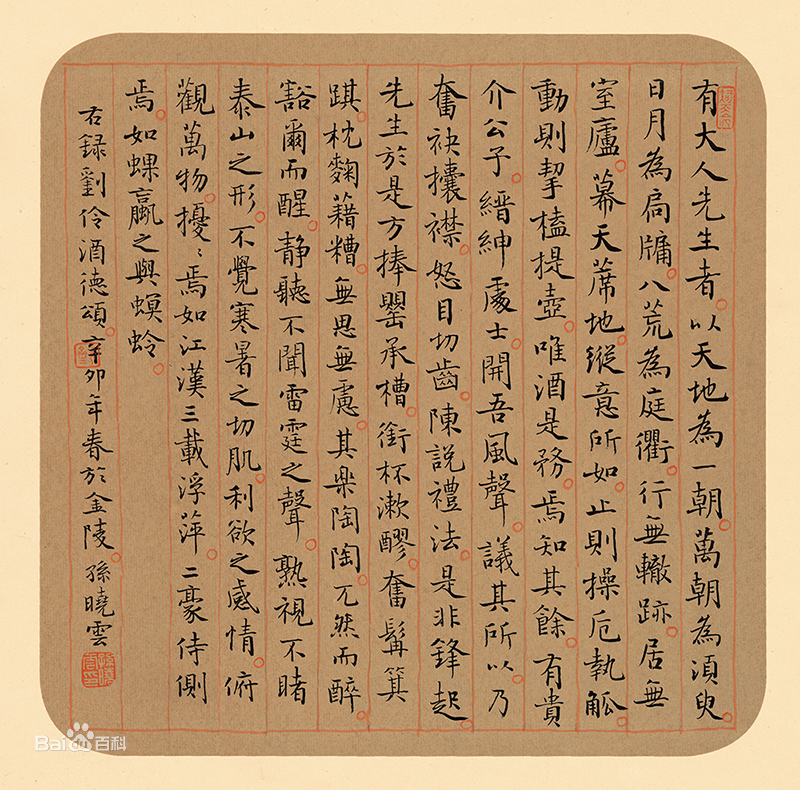 有大人先生者以天地為一朝萬朝為須臾
日月為扃牖八荒為庭衢行無轍跡居無
室廬幕天蓆地縱意所如止則操卮執觚
動則挈榼提壺唯酒是務焉知其餘有貴
介公子縉紳處士開吾風聲議其所以乃
奮袂攘襟怒目切齒陳說禮法是非鋒起
先生於是方捧罌承槽銜杯漱醪奮髯箕
踑枕麴藉糟無思無慮其樂陶陶兀然而醉
豁爾而醒靜聽不聞雷霆之聲熟視不睹
泰山之形不覺寒暑之切肌利欲之感情俯
觀萬物擾〻焉如江漢三載浮萍二豪侍側
焉如蜾蠃之與螟蛉
右録劉伶酒德頌辛卯年春於金陵孫曉雲
Baidu百科